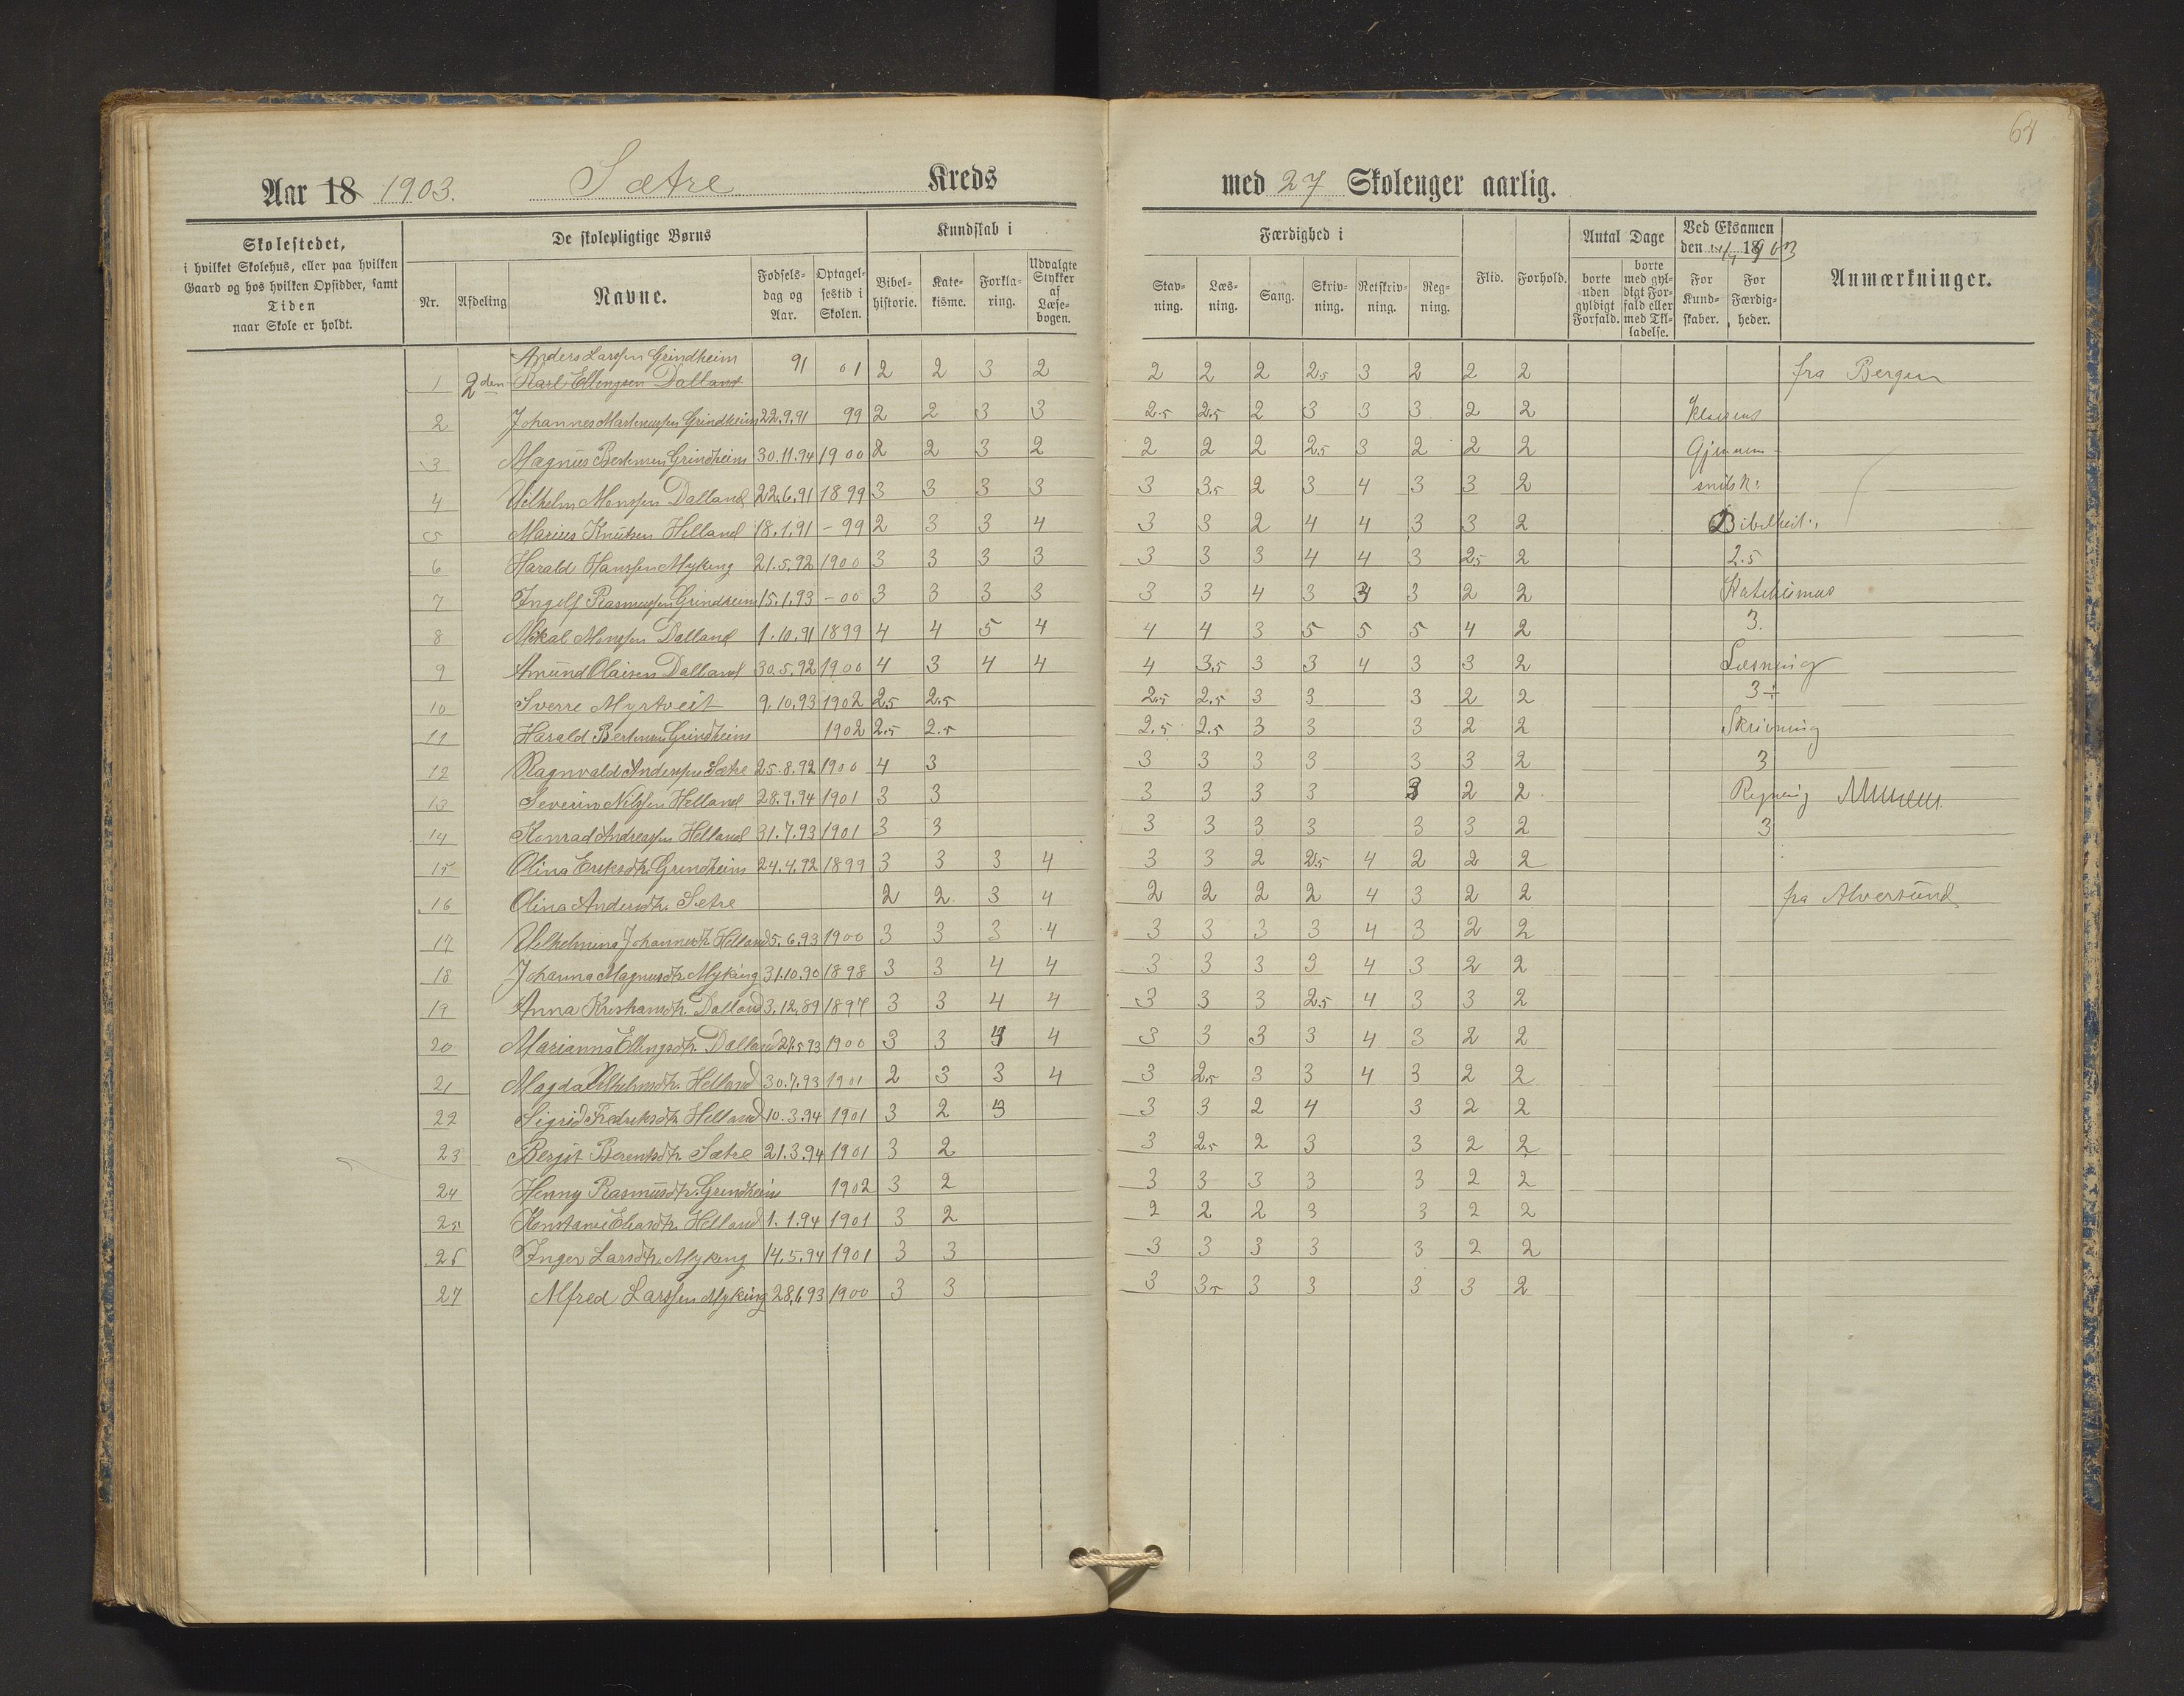 64
Aar 18 1903. Sætre Kreds med 27 Skoleuger aarlig.
Skolestedet, i hvilket Skolehus, eller paa hvilken Gaard og hos hvilken Opsidder, samt Tiden naar Skole er holdt.
De skolepligtige Børns
Nr. Afdeling Navne. Fødselsdag og Aar. Optagelsestid i Skolen.
Kundskab i
Bibelhistorie. Katekisme. Forklaring. Udvalgte Stykker af Læsebogen.
Færdighed i
Stavning. Læsning. Sang. Skrivning. Retskrivning. Regning.
Flid. Forhold.
Antal Dage
borte uden gyldigt Forfald. borte med gyldigt Forfald eller med Tilladelse.
Ved Eksamen den 1903
For Kundskaber. For Færdigheder.
Anmærkninger.
Anders Larssen Grindheim
1 2den Karl Ellingsen Dalland 91 01 2 2 3 2 2 2 2 2.5 3 2 2 2 fra Bergen
2 Johannes Martinussen Grindheim 22.9.91 99 2 2 3 3 2.5 2.5 2 3 3 3 2 2 Klassens
3 Magnus Bertensen Grindheim 30.11.94 1900 2 2 3 2 2 2 2 2.5 3 2 2 2 Gjennem-
4 Vilhelm Monssen Dalland 22.6.91 1899 3 3 3 3 3 3.5 2 3 4 3 3 2 snitsk:
5 Marius Knutsen Helland 18.1.91 - 99 2 3 3 4 3 3 2 4 4 3 3 2 Bibelhist:,
6 Harald Hanssen Myking 21.5.92 1900 3 3 3 3 3 3 3 4 4 3 2.5 2 2.5
7 Ingolf Rasmussen Grindheim 15.1.93 - 00 3 3 3 3 3 3 4 3 3 3 2 2 Katekismus
8 Mikal Monssen Dalland 1.10.91 1899 4 4 5 4 4 4 3 5 5 5 4 2 3.
9 Amund Olaisen Dalland 30.5.92 1900 4 3 4 4 4 3.5 3 3 4 3 3 2 Læsning
10 Sverre Myrtveit 9.10.93 1902 2.5 2.5 2.5 2.5 3 3 3 2 2 3÷
11 Harald Bertensen Grindheim 1902 2.5 2.5 2.5 2.5 3 3 3 2 2 Skrivning
12 Ragnvald Anderssen Sætre 25.8.92 1900 4 3 3 3 3 3 3 3 2 3
13 Severin Nilssen Helland 28.9.94 1901 3 3 3 3 3 3 3 2 2 Regning
14 Konrad Andreassen Helland 31.7.93 1901 3 3 3 3 3 3 3 3 2 3
15 Olina Eriksdtr. Grindheim 24.4.92 1899 3 3 3 4 3 3 2 2.5 4 2 2 2
16 Olina Andersdtr. Sætre 2 2 3 4 2 2 2 2 4 3 2 2 fra Alversund
17 Vilhelmina Johannesdtr. Helland 5.6.93 1900 3 3 3 4 3 3 3 3 4 3 2 2
18 Johanna Magnusdtr. Myking 31.10.90 1898 3 3 4 4 3 3 3 3 4 3 2 2
19 Anna Kristiansdtr. Dalland 3.12.89 1897 3 3 4 4 3 3 3 2.5 4 3 3 2
20 Marianna Ellingsdtr. Dalland 27.5.93 1900 3 3 4 4 3 3 3 3 4 3 2 2
21 Magda Vilhelmsdtr. Helland 30.7.93 1901 2 3 3 4 3 2.5 3 3 4 3 2 2
22 Sigrid Fredriksdtr. Helland 10.3.94 1901 3 2 3 3 3 2 4 3 2 2
23 Bergit Berentsdtr. Sætre 21.3.94 1901 3 2 3 2.5 2 3 3 2 2
24 Henny Rasmusdtr. Grindheim 1902 3 2 3 3 3 3 3 2 2
25 Konstanse Eliasdtr. Helland 1.1.94 1901 3 2 2 2 2 3 3 2 2
26 Inger Larsdtr. Myking 14.5.94 1901 3 3 3 3 3 3 3 2 2
27 Alfred Larssen Myking 28.6.93 1900 3 3 3 3.5 3 3 3 3 2